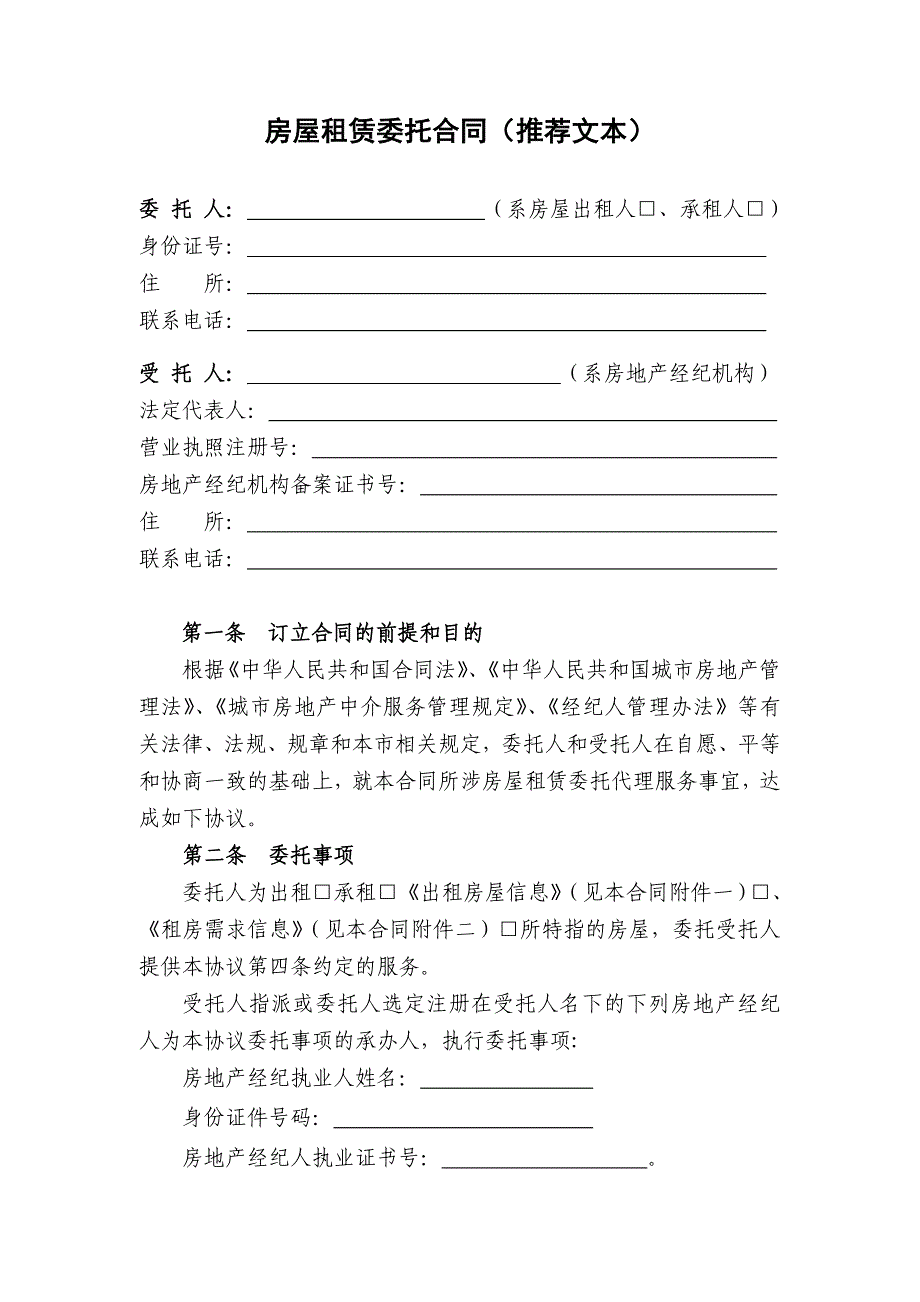 房屋租赁委托合同（推荐文本）
委 托 人：______________________（系房屋出租人□、承租人□）
身份证号：________________________________________________
住　　所：________________________________________________
联系电话：________________________________________________
受 托 人：_____________________________（系房地产经纪机构）
法定代表人：_______________________________________________
营业执照注册号：___________________________________________
房地产经纪机构备案证书号：_________________________________
住　　所：_________________________________________________
联系电话：_________________________________________________
第一条　订立合同的前提和目的
根据《中华人民共和国合同法》、《中华人民共和国城市房地产管
理法》、《城市房地产中介服务管理规定》、《经纪人管理办法》等有
关法律、法规、规章和本市相关规定，委托人和受托人在自愿、平等
和协商一致的基础上，就本合同所涉房屋租赁委托代理服务事宜，达
成如下协议。
第二条　委托事项
委托人为出租□承租□《出租房屋信息》（见本合同附件一）□、
《租房需求信息》（见本合同附件二）□所特指的房屋，委托受托人
提供本协议第四条约定的服务。
受托人指派或委托人选定注册在受托人名下的下列房地产经纪
人为本协议委托事项的承办人，执行委托事项：
房地产经纪执业人姓名：________________
身份证件号码：________________________
房地产经纪人执业证书号：___________________。